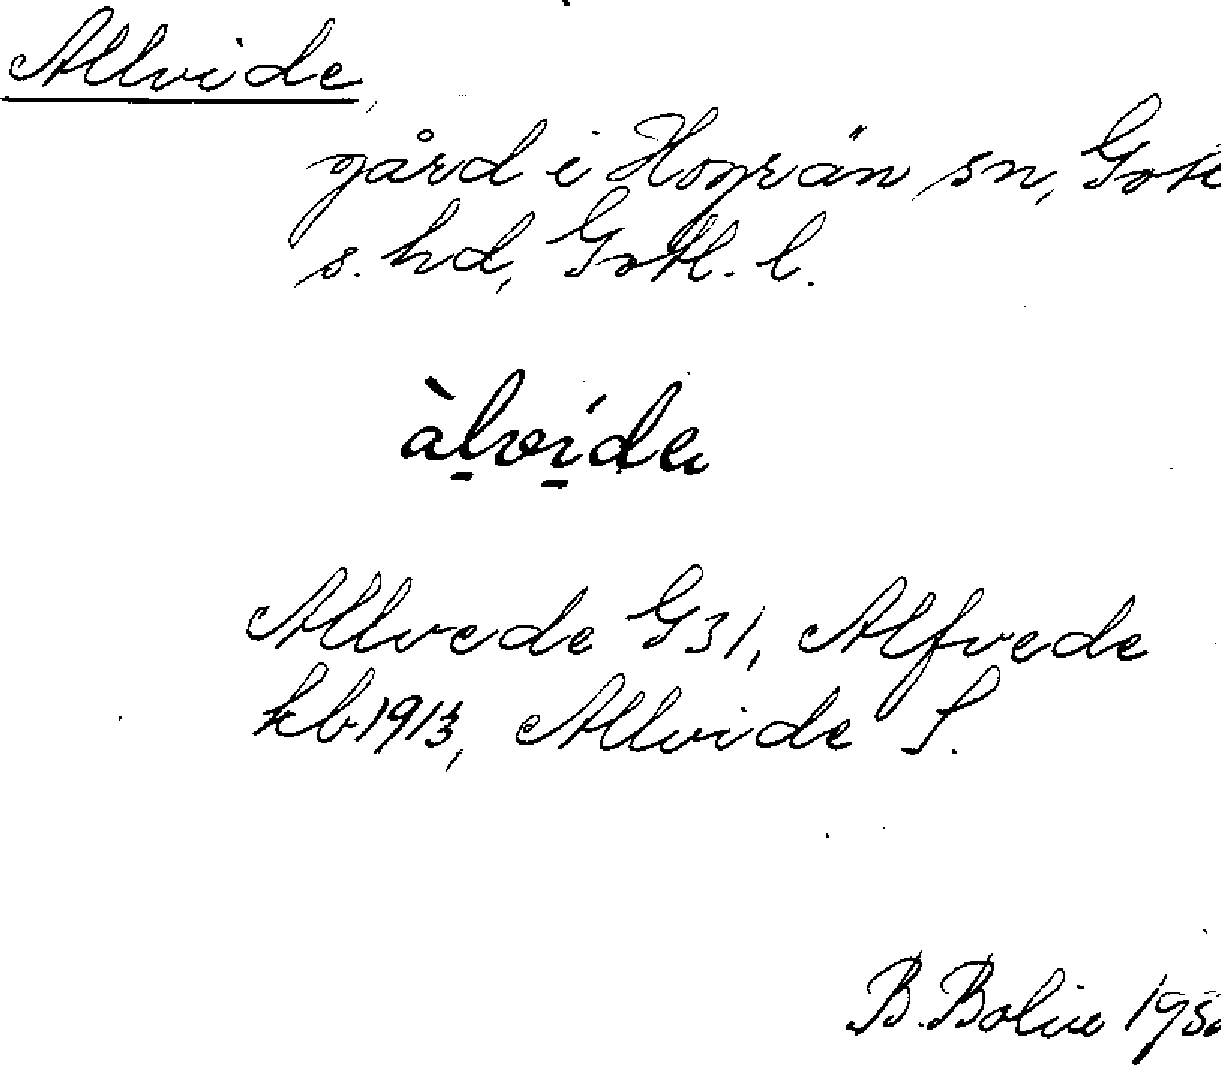 Allvide,
gård i Hogrän sn, Gotl
s. hd, Gotl. l.
àlvide
Allvede G31, Alfvede
kb 1913, Allvide S.
B. Bolin